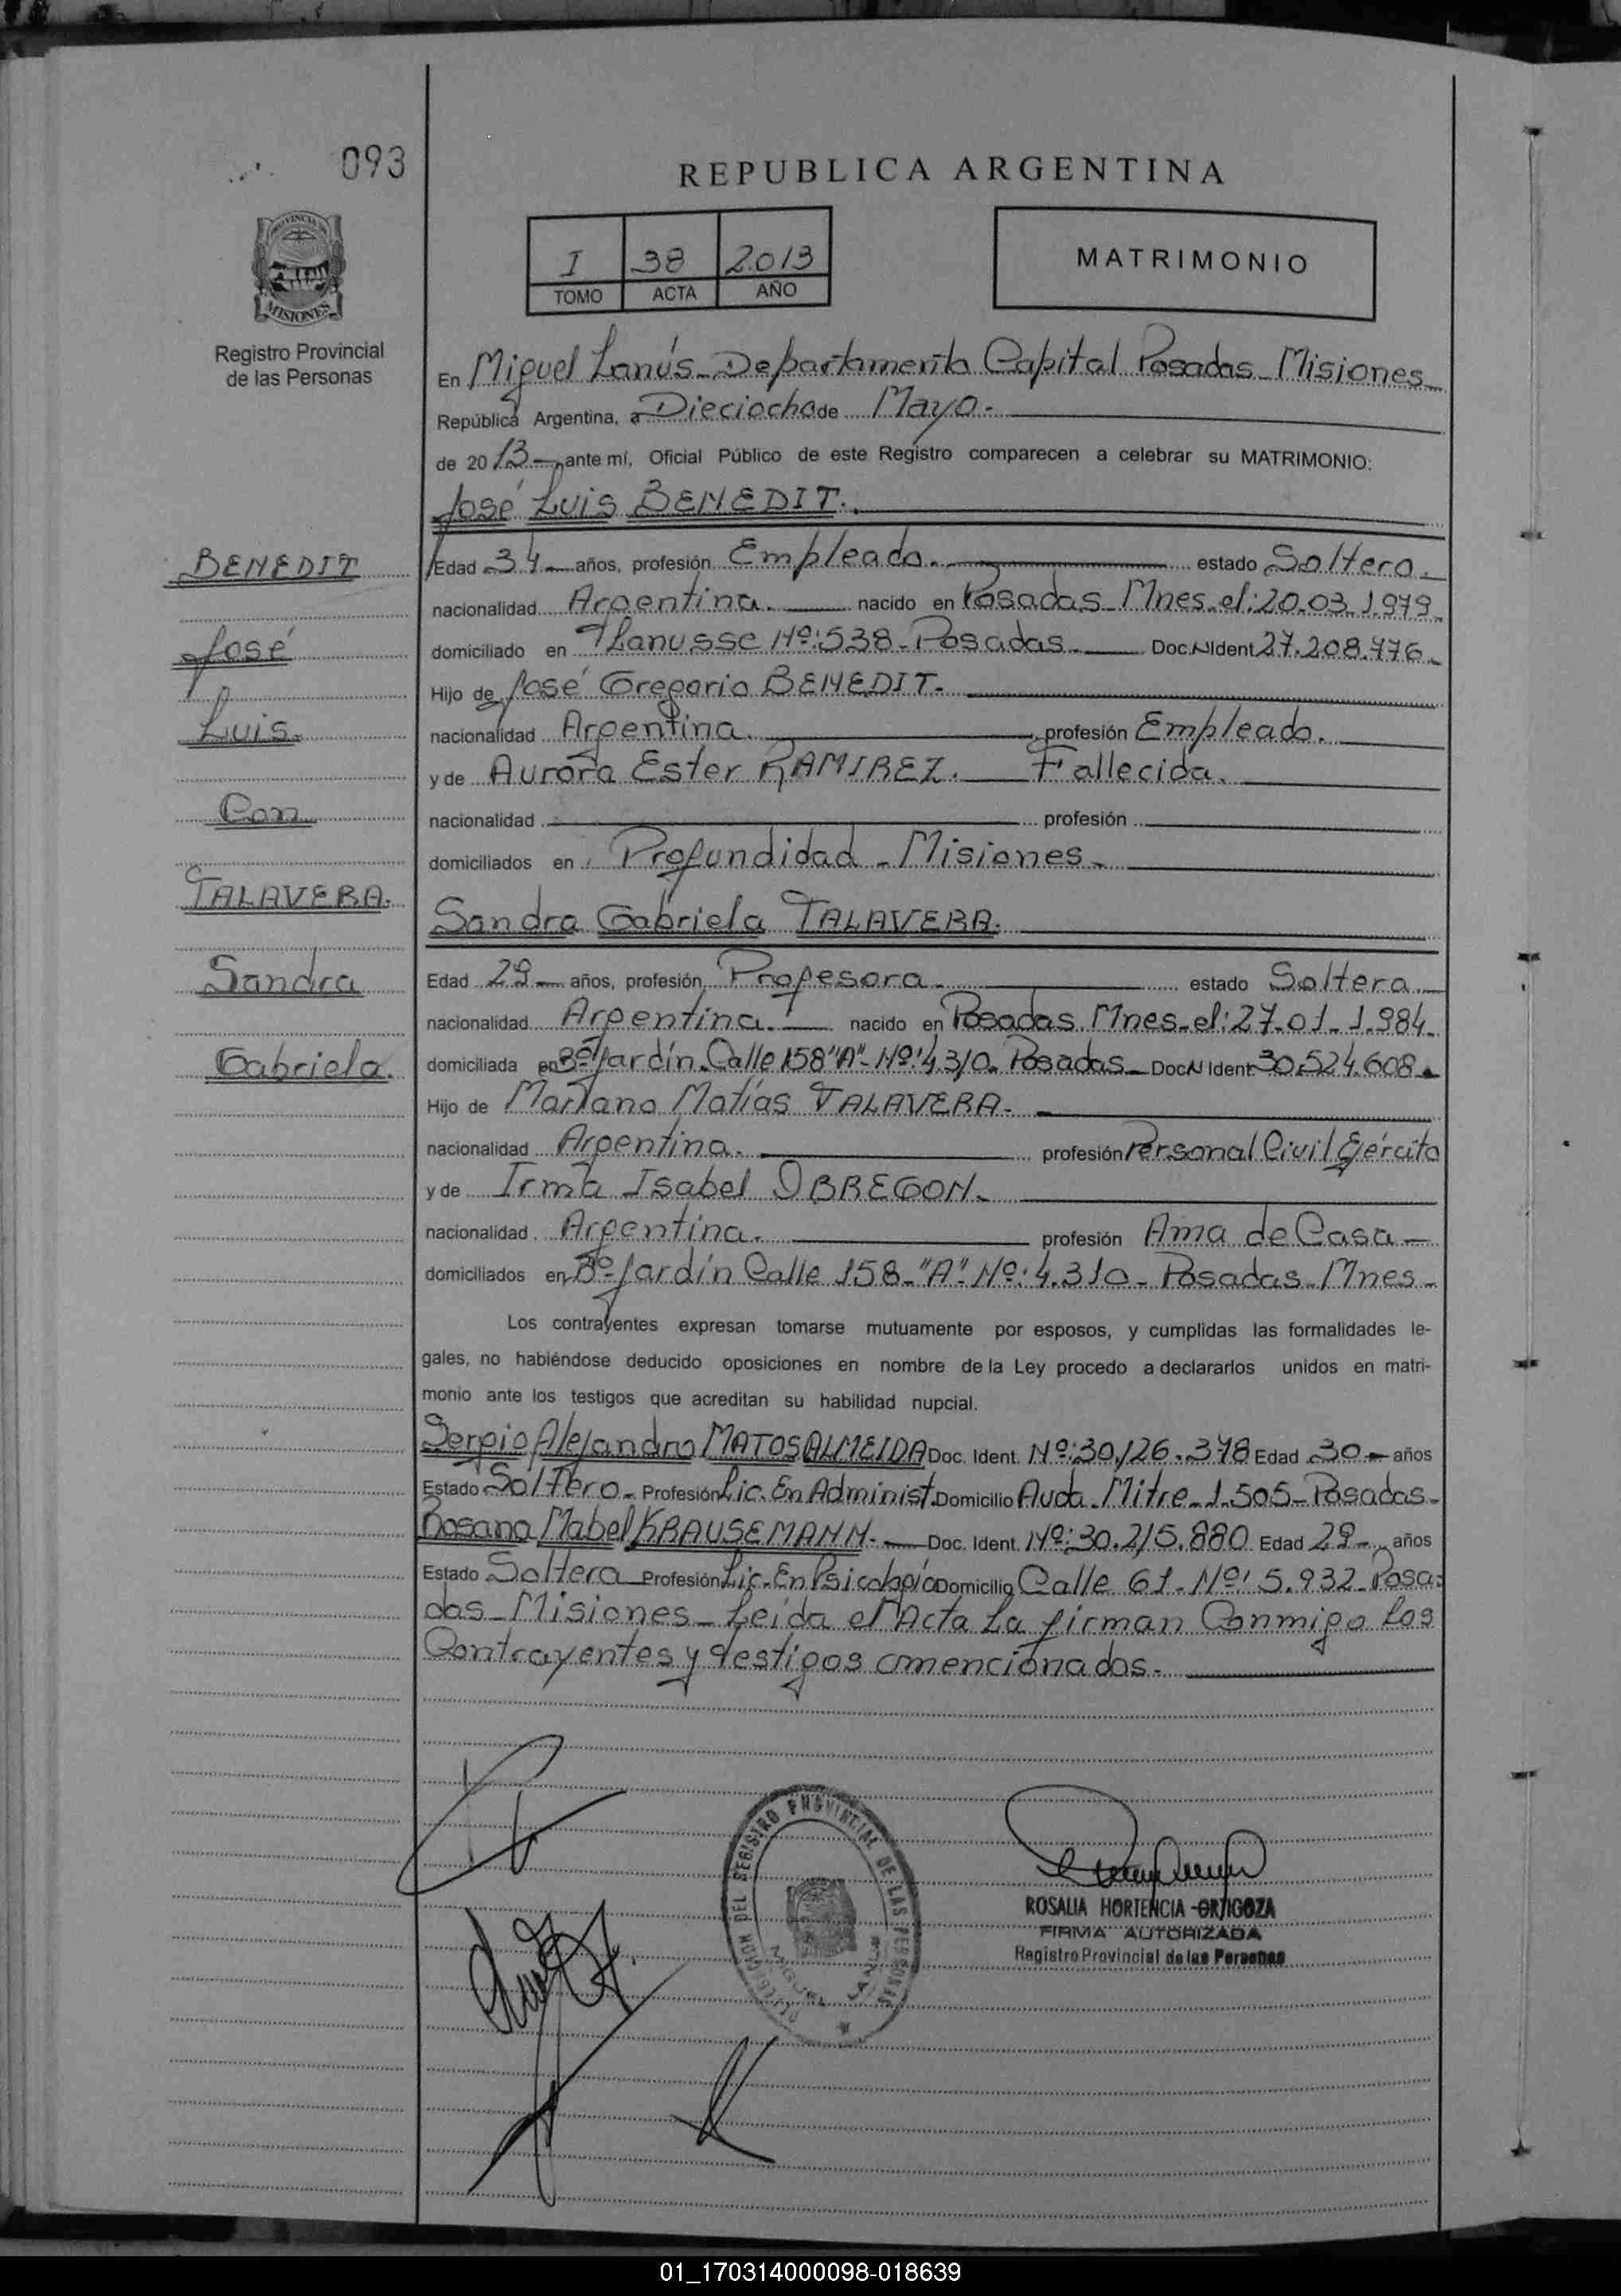 093
REPUBLICA ARGENTINA
PROVINCIA DE
MISIONES
Registro Provincial
de las Personas
I 38 2013
TOMO ACTA AÑO
MATRIMONIO
En Miguel Lanús - Departamento Capital Posadas - Misiones
República Argentina, a Dieciocho de Mayo.-
de 2013 ante mí, Oficial Público de este Registro comparecen a celebrar su MATRIMONIO:
José Luis BENEDIT.
BENEDIT
José
Luis.
Con
TALAVERA.
Sandra
Gabriela.
Edad 34 años, profesión Empleado. estado Soltero.
nacionalidad Argentina. nacido en Posadas Mnes. el: 20.03.1979.
domiciliado en Lanusse Nº: 538 - Posadas. Doc. N Ident 27.208.776.
Hijo de José Gregorio BENEDIT.
nacionalidad Argentina. profesión Empleado.
y de Aurora Ester RAMIREZ. Fallecida.
nacionalidad profesión
domiciliados en Profundidad - Misiones -
Sandra Gabriela TALAVERA.
Edad 29 años, profesión Profesora estado Soltera
nacionalidad Argentina. nacido en Posadas Mnes. el: 27.01.1.984.
domiciliada en Bº Jardín. Calle 158 "A" - Nº: 4.310. Posadas - Doc N Ident 30.524.608.
Hijo de Mariano Matías TALAVERA.
nacionalidad Argentina. profesión Personal Civil Ejército
y de Irma Isabel OBREGON.
nacionalidad Argentina. profesión Ama de Casa
domiciliados en Bº Jardín Calle 158 - "A" Nº: 4.310 - Posadas - Mnes -
Los contrayentes expresan tomarse mutuamente por esposos, y cumplidas las formalidades le-
gales, no habiéndose deducido oposiciones en nombre de la Ley procedo a declararlos unidos en matri-
monio ante los testigos que acreditan su habilidad nupcial.
Sergio Alejandro MATOS ALMEIDA Doc. Ident. Nº: 30.126.378 Edad 30 años
Estado Soltero. Profesión Lic. En Administ. Domicilio Avda. Mitre - 1.505 - Posadas -
Rosana Mabel KRAUSEMANN. Doc. Ident. Nº: 30.215.880 Edad 29 años
Estado Soltera Profesión Lic. En Psicología Domicilio Calle 61 - Nº: 5.932 - Posa-
das - Misiones - Leída el Acta La firman Conmigo los
Contrayentes y testigos mencionados.
DELEGACION DEL REGISTRO PROVINCIAL DE LAS PERSONAS
MIGUEL LANUS
ROSALIA HORTENCIA ORTIGOZA
FIRMA AUTORIZADA
Registro Provincial de las Personas
01_170314000098-018639